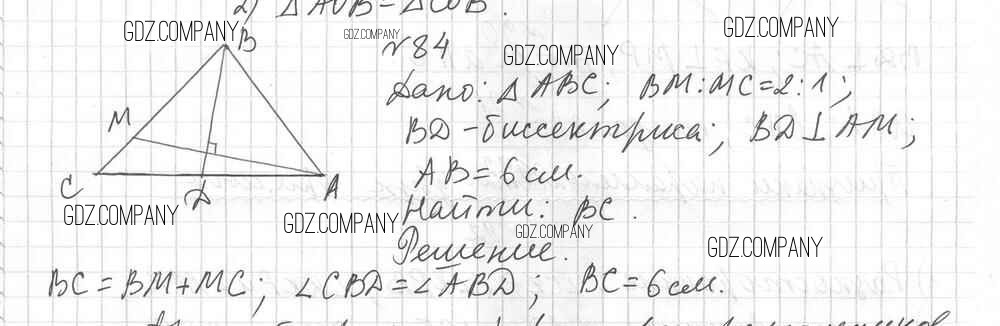 2) △AOB=△COB.
GDZ.COMPANY GDZ.COMPANY GDZ.COMPANY
B
№84
GDZ.COMPANY
Дано: △ABC; BM:MC=2:1;
M
BD-биссектриса; BD⊥AM;
AB=6см.
C D A
GDZ.COMPANY GDZ.COMPANY
Найти: BC.
GDZ.COMPANY GDZ.COMPANY
Решение.
BC=BM+MC; ∠CBD=∠ABD; BC=6см.